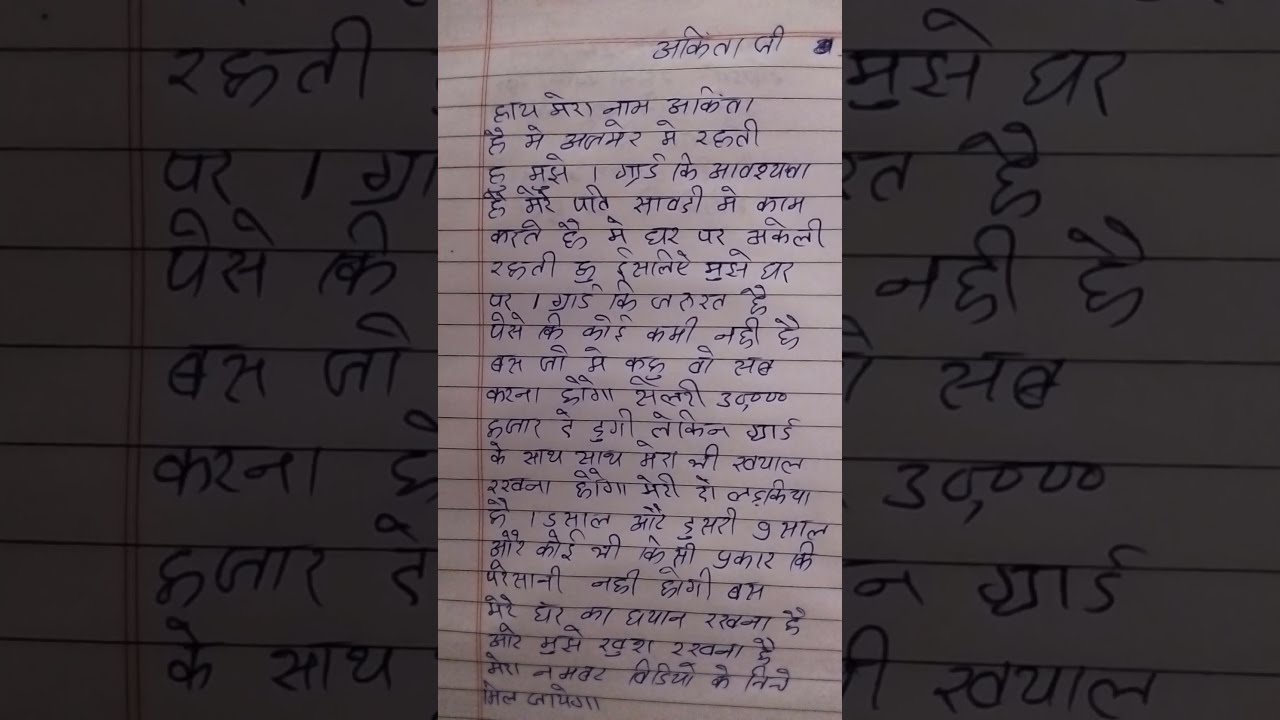 अकिंता जी
हाय मेरा नाम अकिंता
है मे अजमेर मे रहती
हु मुझे 1 गार्ड कि आवश्यका
है मेरे पति सावदी मे काम
करते है मे घर पर अकेली
रहती हु ईसलिऐ मुझे घर
पर 1 गार्ड कि जरुरत है
पेसे कि कोई कमी नही है
बस जो मे कहु वो सब
करना होगा सेलरी 30,000
हजार दे दुगी लेकिन गार्ड
के साथ साथ मेरा भी खयाल
रखना होगा मेरी दो लड़किया
है 15 साल और दुसरी 9 साल
और कोई भी किसी प्रकार कि
परेसानी नही होगी बस
मेरे घर का धयान रखना है
और मुझे खुश रखना है
मेरा नमबर विडियो के निचे
मिल जायेगा